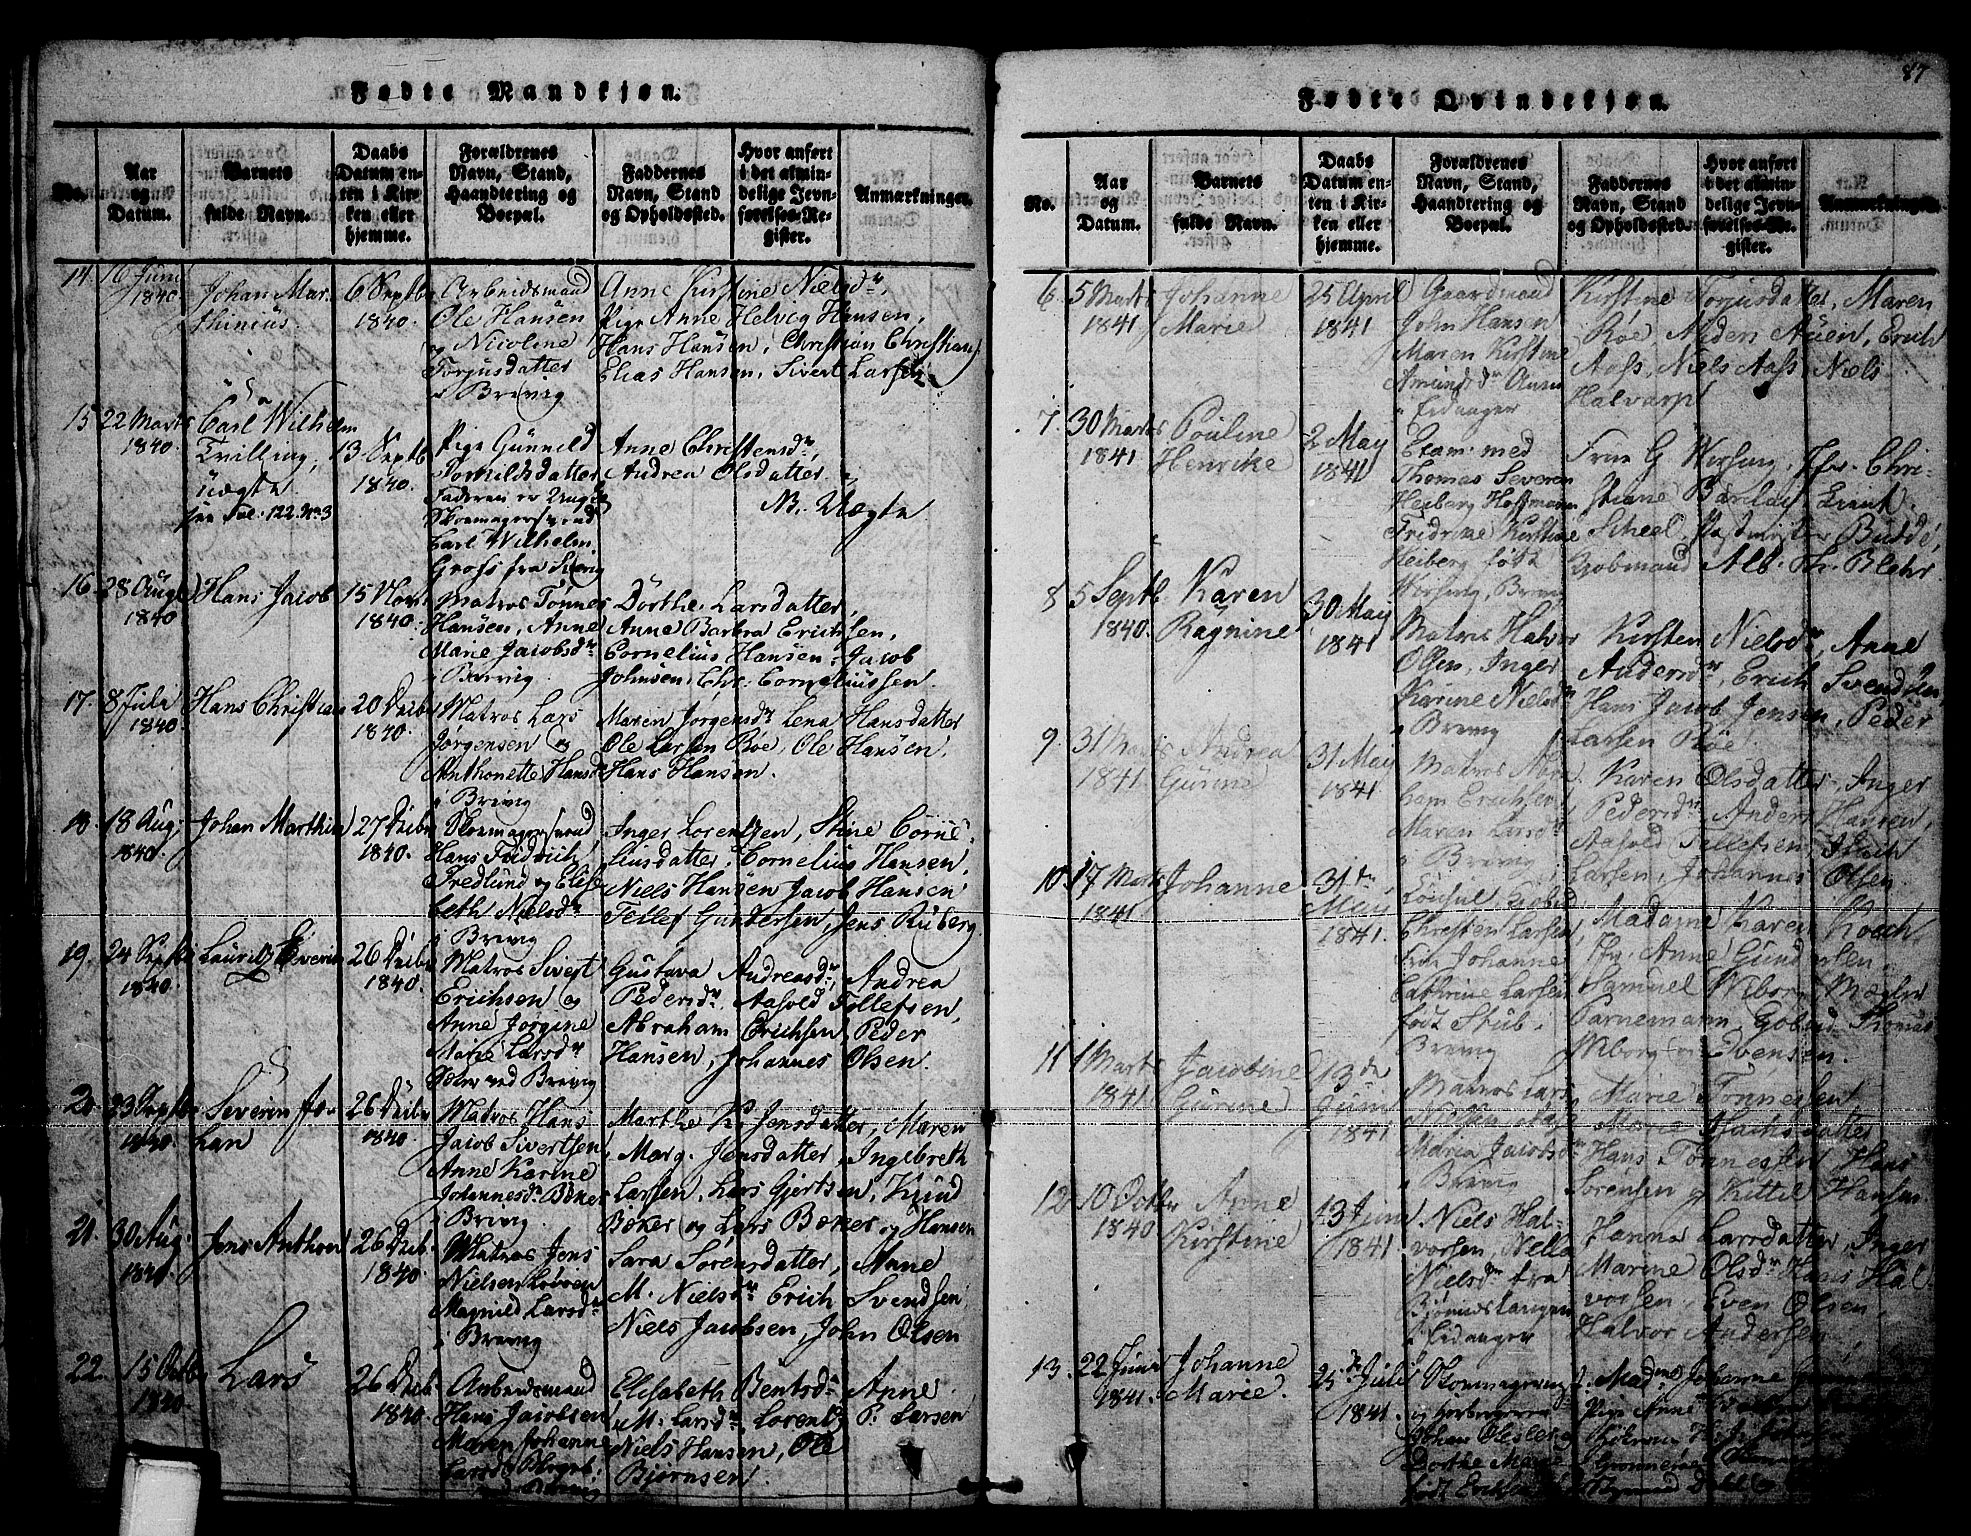 87
Fødte Mandkjøn.
No.
Aar og Datum.
Barnets fulde Navn.
Daabs Datum enten i Kirken eller hjemme.
Forældrenes Navn, Stand, Haandtering og Boepæl.
Faddernes Navn, Stand og Opholdssted.
Hvor anført i det almindelige Jevnførelses-Register.
Anmærkninger.
14. 16 Juni 1840
Johan Marthinius
6 Septbr 1840.
Arbeidsmand
Ole Hansen
og Nicoline
Torjusdatter
i Brevig
Anne Kirstine Nielsdr,
Pige Anne Helvig Hansen,
Hans Hansen, Christian Christians
Elias Hansen, Sivert Larsen
15. 22 Marts 1840.
Carl Wilhelm
Tvilling,
uægte
see Fol. 122. No 3
13 Septb 1840.
Pige Gunnild
Torkildsdatter
Faderen er
Skomagersvend
Carl Wilhelm
Gross fra
Anne Christensdr,
Andrea Olsdatter
NB. Uægte
16. 28 Aug 1840
Hans Jacob
15 Nov. 1840.
Matros Tønnes
Hansen, Anne
Marie Jacobsdr
i Brevig.
Dorthe Larsdatter,
Anne Barbra Erichsen,
Cornelius Hansen, Jacob
Johnsen, Chr. Corneliussen.
17. 8 Julii 1840.
Hans Christian
20 Decbr 1840.
Matros Lars
Jørgensen og
Anthonette Hansd
i Brevig
Maren Jørgensdr Lena Hansdatter
Ole Larsen Røe, Ole Hansen,
Hans Hansen.
18. 18 Aug. 1840.
Johan Marthin
27 Decbr 1840.
Skomagersvend
Hans Fridrich
Fredlund og Elisa
beth Nielsdr
i Brevig
Inger Lorentzen, Stine Corne-
liusdatter, Cornelius Hansen,
Niels Hansen Jacob Hansen
Tellef Gundersen, Jens Ruberg
19. 24 Septbr 1840.
Lauritz Severin
26 Decbr 1840.
Matros Sivert
Erichsen og
Anne Jorgine
Marie Larsdr
Odden ved Brevig
Gustava Andreasdr, Andrea
Pedersdr Aasold Tellefsen,
Abraham Erichsen, Peder
Hansen, Johannes Olsen.
20. 23 Septbr 1840.
Severin Jo-
han
26 Decbr 1840
Matros Hans
Jacob Sivertsen,
Anne Karine
Johannesdr Bøker
i Brevig.
Marthe K. Jensdatter, Maren
Marg. Jensdatter, Ingebreth
Larsen, Lars Gjertsen, Knud
Bøker og Lars Bøker og Hansen
21. 30 Aug. 1840
Jens Anthon
26 Decb. 1840.
Matros Jens
Nielsen
Magnild Larsdr
i Brevig
Sara Sørensdatter, Anne
M. Nielsdr Erich Svendsen
Niels Jacobsen, John Olsen
22. 15 Octbr 1840.
Lars
26 Decb. 1840.
Arbeidsmand
Hans Jacobsen
Maren Johanne
Elisabeth Bentsdr Anne
M. Larsdr, Lorentz P. Larsen
Niels Hansen, Ole
Bjørnsen.
Fødte Qvindekjøn.
No.
Aar og Datum.
Barnets fulde Navn.
Daabs Datum enten i Kirken eller hjemme.
Forældrenes Navn, Stand, Haandtering og Boepæl.
Faddernes Navn, Stand og Opholdssted.
Hvor anført i det almindelige Jevnførelses-Register.
Anmærkninger.
6. 5 Marts 1841
Johanne
Marie
25 April 1841
Gaardmand
John Hansen
Maren Kirstine
Amundsdr
i Eidanger
Kirstine Torjusdatter, Maren
Røe, Anders Auen, Erich
Aass, Niels Aass, Niels
Halvorp
7. 30 Marts 1841
Pouline
Henrike
2 May 1841
Exam. med
Thomas Severin
Heiberg Hoffmann
Fridrike Kirstine
Heiberg født
Wirsing, Brevig
Frue G. Wirsing, Jfr. Chri-
stiane Barclay, Lieut.
Scheel, Postmester Budde,
Kjøbmand Alb. Th. Blehr
8. 5 Septb. 1840.
Karen
Ragnine
30 May 1841
Matros Halvor
Olsen, Inger
Karine Nielsdr
i Brevig
Kirsten Nielsdr, Anne
Andersdr, Erich Svendsen
Hans Jacob Jensen, Peder
Larsen Røe.
9. 31 Marts 1841
Andrea
Gurine
31 May 1841
Matros Abra-
ham Erichsen
Maren Larsdr
i Brevig
Karen Olsdatter, Inger
Pedersdr Anders Hansen,
Aasold Tellefsen, Isach
Larsen, Johannes Olsen
10. 17 Marts 1841.
Johanne
31te Mai 1841.
Consul
Christen Larsen,
Johanne
Cathrine Larsen
født Stub,
Brevig
Madame Karen Koch
Jfr. Anne Gundersen
Samuel Wiborg, Mægler
Parnemann,
Wiborg Evensen.
11. 1 Marts 1841
Jacobine
Gurine
13de Juni 1841
Matros Lars
Maria Jacobsdr
i Brevig
Marie Tønnessen
Isachsdatter
Hans Tønnessen, Hans
Sørensen og Kittil Hansen
12. 10 Octbr 1840.
Anne
Kirstine
13 Juni 1841.
Niels Hal-
vorsen, Nella
Nielsdr fra
i Eidanger
Hanna Larsdatter, Inger
Marine Olsdr Hans Hal-
vorsen, Even Olsen
Halvor Andersen
13. 22 Juni 1841.
Johanne
Marie.
25 Julii 1841.
Dorthe Marie
født
Mad. Johanne
Pige Anne